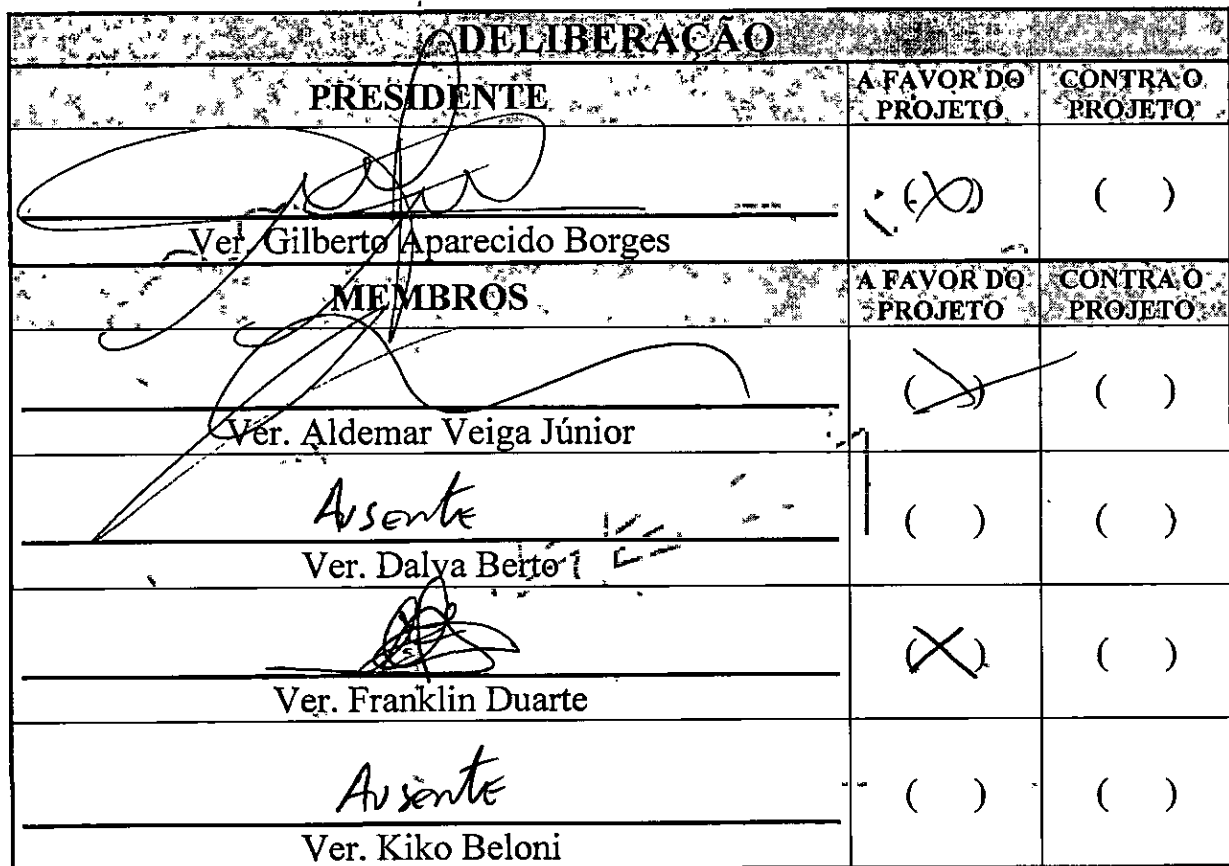 DELIBERAÇÃO
PRESIDENTE
A FAVOR DO PROJETO
CONTRA O PROJETO
(X)
( )
Ver. Gilberto Aparecido Borges
MEMBROS
A FAVOR DO PROJETO
CONTRA O PROJETO
(X)
( )
Ver. Aldemar Veiga Júnior
Ausente
( )
( )
Ver. Dalva Berto
(X)
( )
Ver. Franklin Duarte
Ausente
( )
( )
Ver. Kiko Beloni